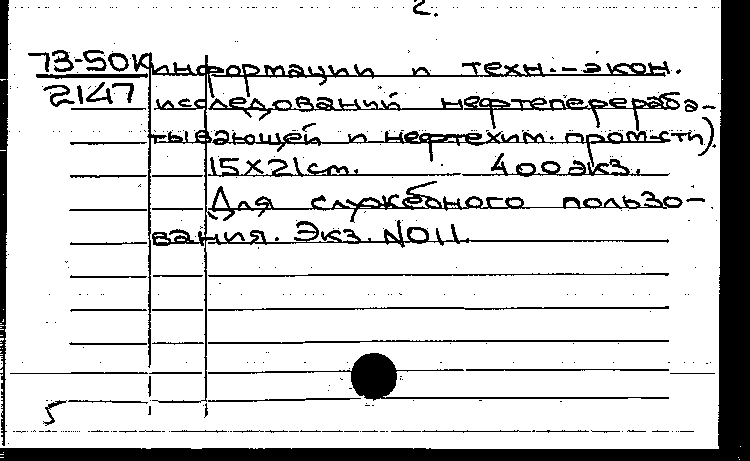 2.
73-50К информации и техн.-экон.
2147 исследований нефтеперераба-
тывающей и нефтехим. пром-сти)
15×21см. 400экз.
Для служебного пользо-
вания. Экз. №011.
5